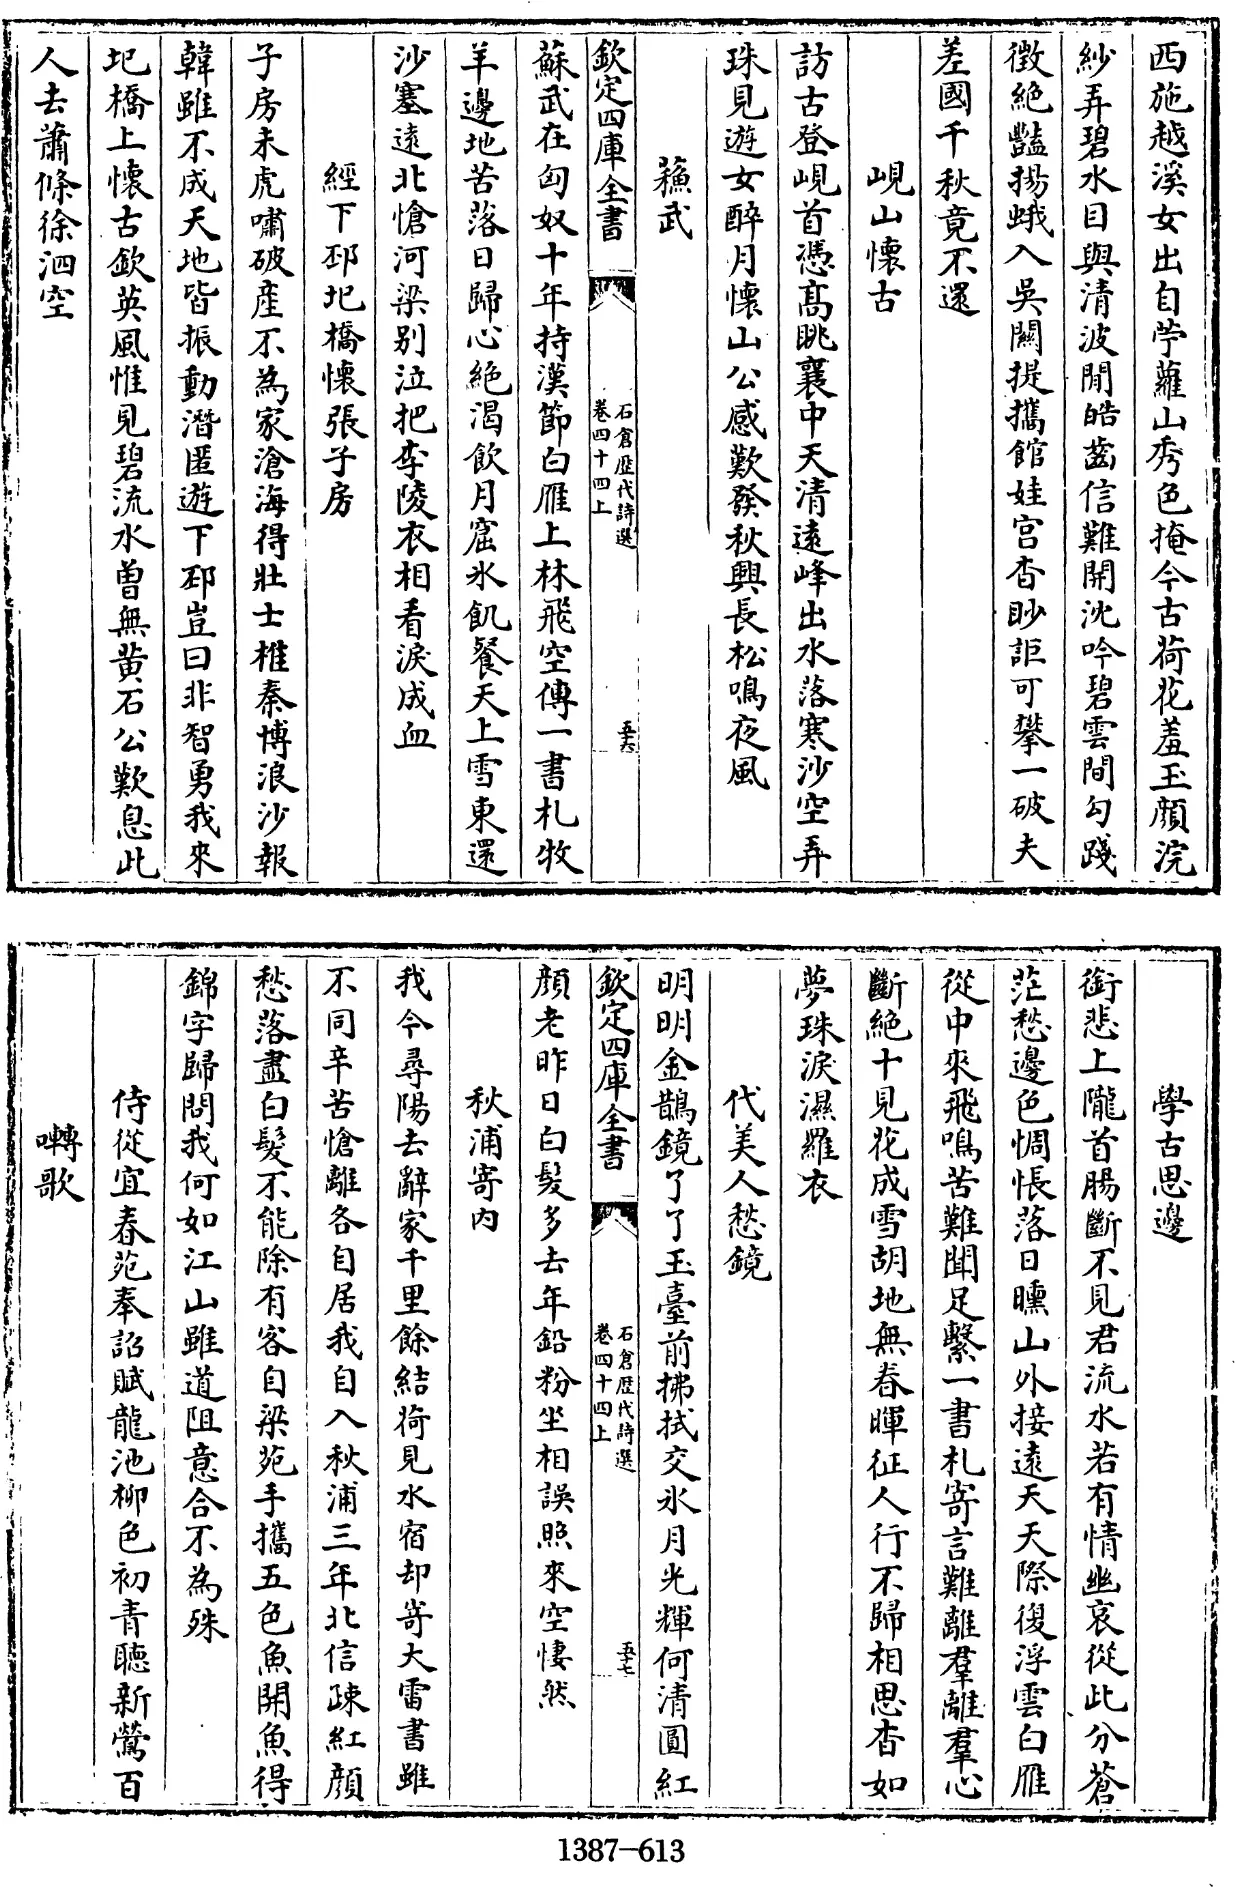 西施越溪女出自苧蘿山秀色掩今古荷花羞玉顔浣
紗弄碧水自與清波閒皓齒信難開沈吟碧雲間勾踐
徵絶豔揚蛾入吳關提攜館娃宫杳眇詎可攀一破夫
差國千秋竟不還
峴山懷古
訪古登峴首憑高眺襄中天清逺峰出水落寒沙空弄
珠見遊女醉月懷山公感歎發秋興長松鳴夜風
蘓武
欽定四庫全書
石倉歴代詩選
卷四十四上
五六
蘇武在匈奴十年持漢節白雁上林飛空傳一書札牧
羊邊地苦落日歸心絶渴飲月窟氷飢餐天上雪東還
沙塞逺北愴河梁别泣把李陵衣相看淚成血
經下邳圯橋懷張子房
子房未虎嘯破産不為家滄海得壯士椎秦博浪沙報
韓雖不成天地皆振動潛匿遊下邳豈曰非智勇我來
圯橋上懷古欽英風惟見碧流水曽無黄石公歎息此
人去蕭條徐泗空
學古思邊
銜悲上隴首腸斷不見君流水若有情幽哀從此分蒼
茫愁邊色惆悵落日曛山外接逺天天際復浮雲白雁
從中來飛鳴苦難聞足繫一書札寄言難離羣離羣心
斷絶十見花成雪胡地無春暉征人行不歸相思杳如
夢珠淚濕羅衣
代美人愁鏡
明明金鵲鏡了了玉臺前拂拭交氷月光輝何清圓紅
欽定四庫全書
石倉歴代詩選
卷四十四上
五七
顔老昨日白髮多去年鉛粉坐相誤照來空悽然
秋浦寄内
我今尋陽去辭家千里餘結荷見水宿却寄大雷書雖
不同辛苦愴離各自居我自入秋浦三年北信疎紅顔
愁落盡白髪不能除有客自梁苑手攜五色魚開魚得
錦字歸問我何如江山雖道阻意合不為殊
侍從宜春苑奉詔賦龍池柳色初青聽新鶯百
囀歌
1387-613